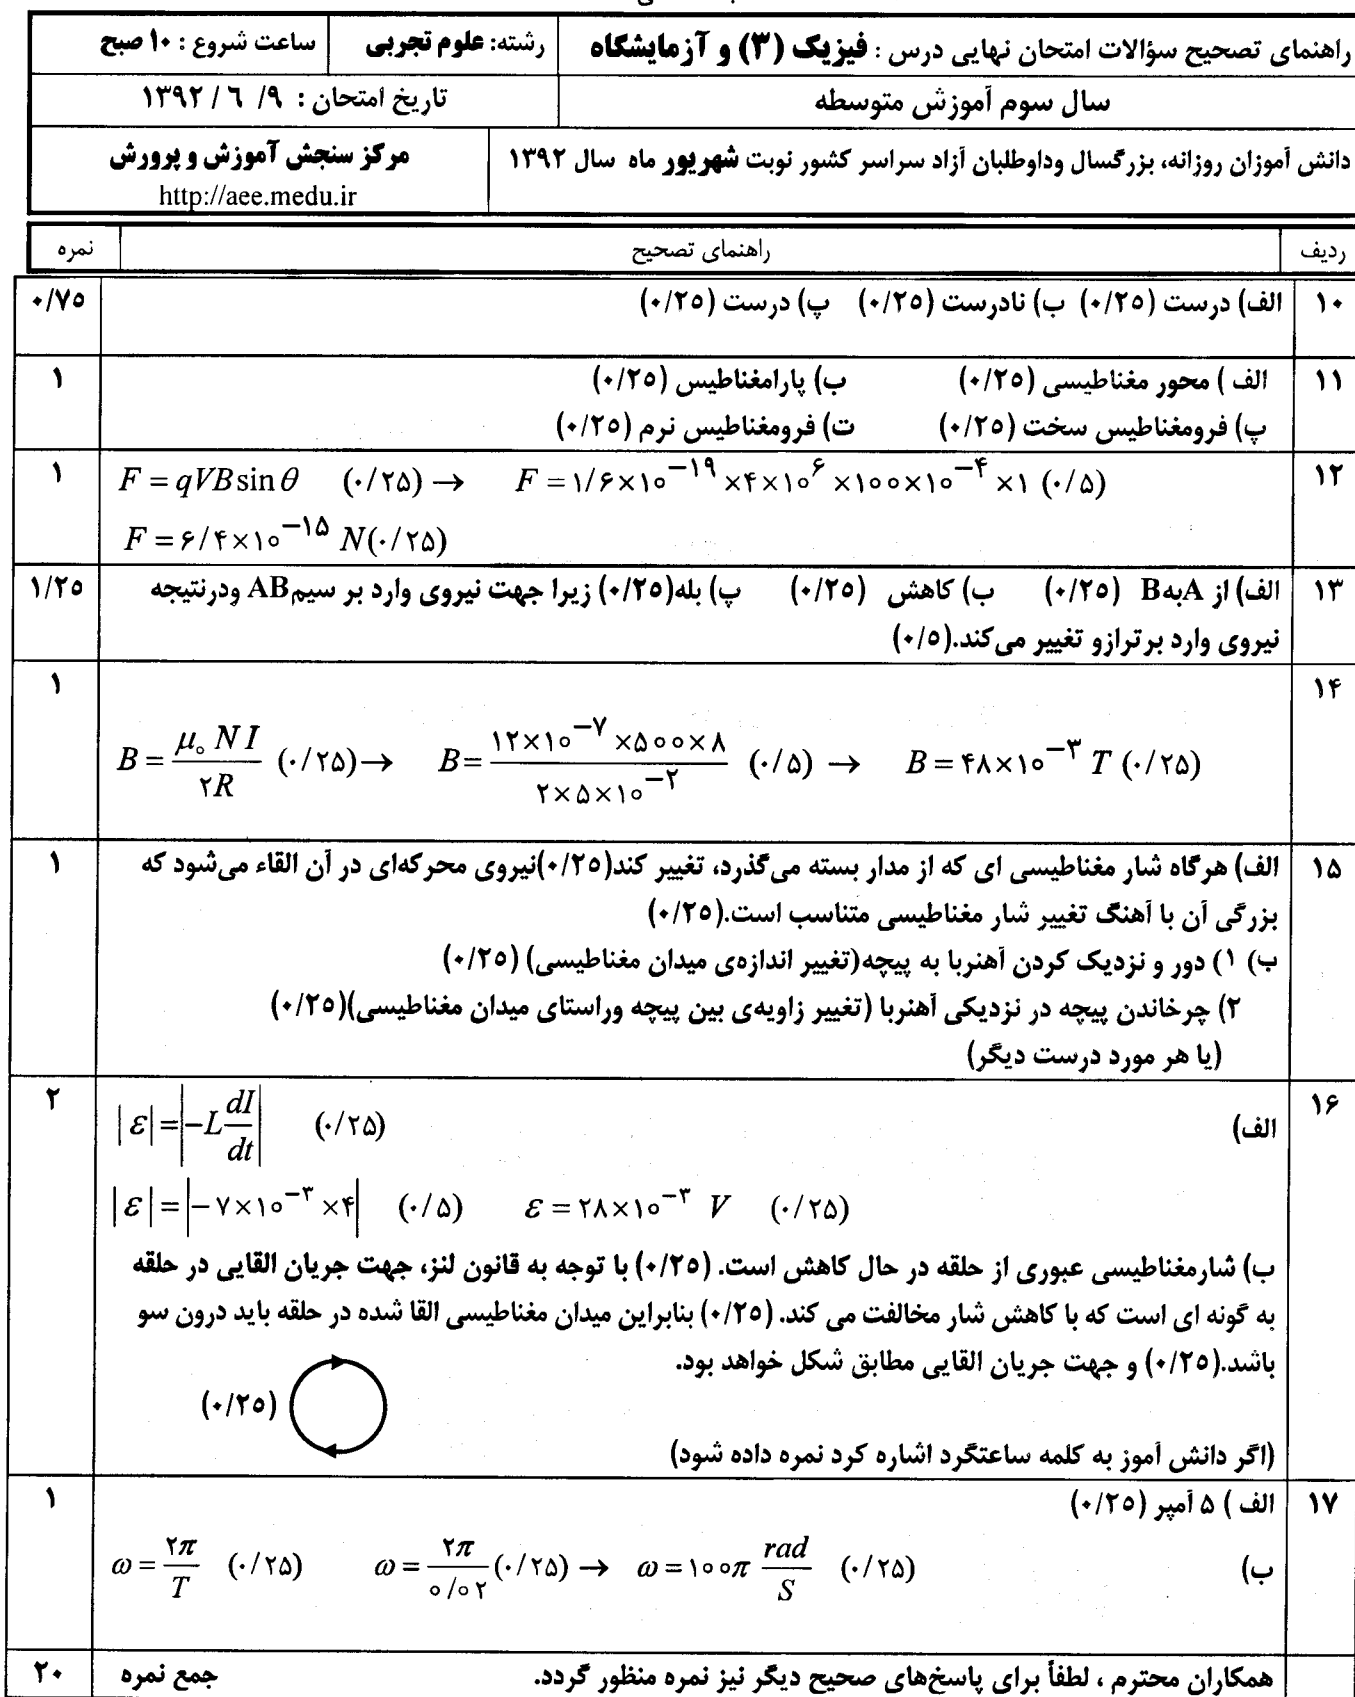 راهنمای تصحیح سؤالات امتحان نهایی درس : فیزیک (۳) و آزمایشگاه رشته: علوم تجربی ساعت شروع : ۱۰ صبح
سال سوم آموزش متوسطه تاریخ امتحان : ۹/ ۶ / ۱۳۹۲
دانش آموزان روزانه، بزرگسال وداوطلبان آزاد سراسر کشور نوبت شهریور ماه سال ۱۳۹۲ مرکز سنجش آموزش و پرورش
http://aee.medu.ir
ردیف راهنمای تصحیح نمره
۱۰ الف) درست (۰/۲۵) ب) نادرست (۰/۲۵) پ) درست (۰/۲۵) ۰/۷۵
۱۱ الف ) محور مغناطیسی (۰/۲۵) ب) پارامغناطیس (۰/۲۵) ۱
پ) فرومغناطیس سخت (۰/۲۵) ت) فرومغناطیس نرم (۰/۲۵)
۱۲ F = qVB sin θ (۰/۲۵) → F = ۱/۶×۱۰^−۱۹ ×۴×۱۰^۶ ×۱۰۰×۱۰^−۴ ×۱ (۰/۵) ۱
F = ۶/۴×۱۰^−۱۵ N(۰/۲۵)
۱۳ الف) از AبهB (۰/۲۵) ب) کاهش (۰/۲۵) پ) بله(۰/۲۵) زیرا جهت نیروی وارد بر سیمAB ودرنتیجه ۱/۲۵
نیروی وارد برترازو تغییر می‌کند.(۰/۵)
۱۴ ۱
B = μ₀ NI / ۲R (۰/۲۵) → B = ۱۲×۱۰^−۷ ×۵۰۰×۸ / ۲×۵×۱۰^−۲ (۰/۵) → B = ۴۸×۱۰^−۳ T (۰/۲۵)
۱۵ الف) هرگاه شار مغناطیسی ای که از مدار بسته می‌گذرد، تغییر کند(۰/۲۵)نیروی محرکه‌ای در آن القاء می‌شود که ۱
بزرگی آن با آهنگ تغییر شار مغناطیسی متناسب است.(۰/۲۵)
ب) ۱) دور و نزدیک کردن آهنربا به پیچه(تغییر اندازه‌ی میدان مغناطیسی) (۰/۲۵)
۲) چرخاندن پیچه در نزدیکی آهنربا (تغییر زاویه‌ی بین پیچه وراستای میدان مغناطیسی)(۰/۲۵)
(یا هر مورد درست دیگر)
۱۶ الف) |ε| = |−L dI/dt| (۰/۲۵) ۲
|ε| = |−۷×۱۰^−۳ ×۴| (۰/۵) ε = ۲۸×۱۰^−۳ V (۰/۲۵)
ب) شارمغناطیسی عبوری از حلقه در حال کاهش است. (۰/۲۵) با توجه به قانون لنز، جهت جریان القایی در حلقه
به گونه ای است که با کاهش شار مخالفت می کند. (۰/۲۵) بنابراین میدان مغناطیسی القا شده در حلقه باید درون سو
باشد.(۰/۲۵) و جهت جریان القایی مطابق شکل خواهد بود.
(۰/۲۵)
(اگر دانش آموز به کلمه ساعتگرد اشاره کرد نمره داده شود)
۱۷ الف ) ۵ آمپر (۰/۲۵) ۱
ب) ω = ۲π / T (۰/۲۵) ω = ۲π / ۰/۰۲ (۰/۲۵) → ω = ۱۰۰π rad / S (۰/۲۵)
همکاران محترم ، لطفاً برای پاسخ‌های صحیح دیگر نیز نمره منظور گردد. جمع نمره ۲۰